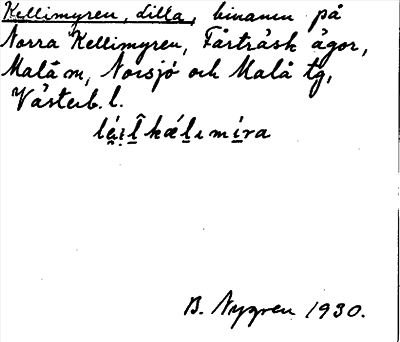 Kellimyren, lilla, binamn på
Norra Kellimyren, Fårträsk ägor,
Malå m, Norsjö och Malå tg,
Västerb. l.
B. Nygren 1930.